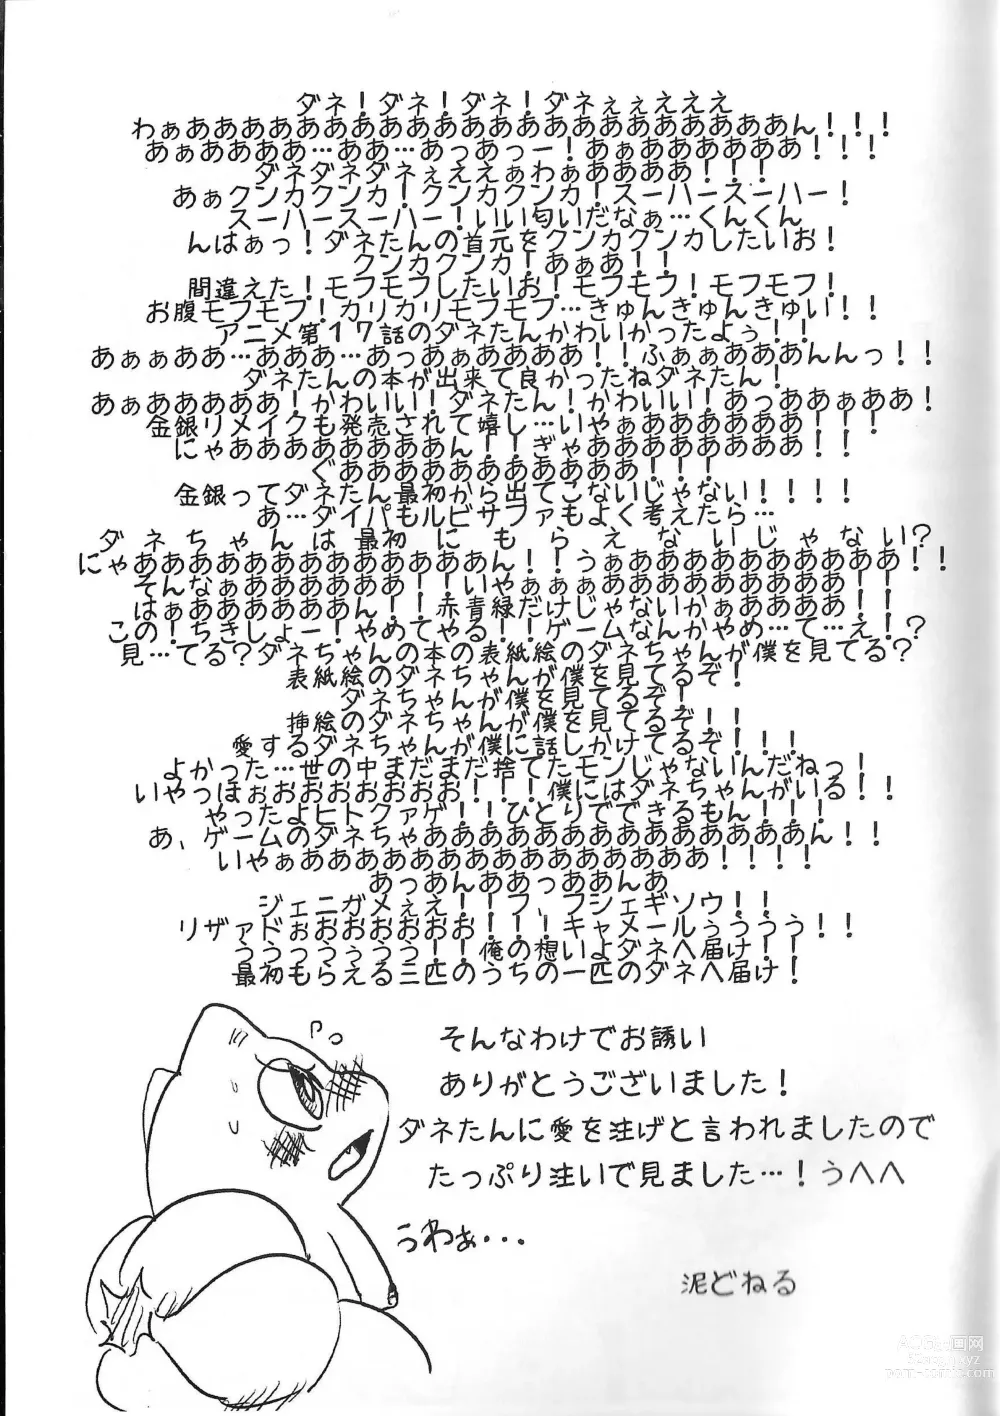 ダネ！ダネ！ダネ！ダネぇぇえええ
わぁああああああああああああああああああああああん！！！
あぁああああ…ああ…あっあっー！あぁああああああ！！！
ダネダネダネぇええぇわぁああああ！！！
あぁクンカクンカ！クンカクンカ！スーハースーハー！
スーハースーハー！いい匂いだなぁ…くんくん
んはぁっ！ダネたんの首元をクンカクンカしたいお！
クンカクンカ！あぁあ！！
間違えた！モフモフしたいお！モフモフ！モフモフ！
お腹モフモフ！カリカリモフモフ…きゅんきゅんきゅい！！
アニメ第１７話のダネたんかわいかったよぅ！！
あぁぁああ…あああ…あっあぁああああ！！ふぁぁあああんんっ！！
ダネたんの本が出来て良かったねダネたん！
あぁあああああ！かわいい！ダネたん！かわいい！あっああぁああ！
金銀リメイクも発売されて嬉し…いやぁああああああ！！！
にゃああああああああん！！ぎゃああああああああ！！
ぐあああああああああああ！！！
金銀ってダネたん最初から出てこないじゃない！！！！
あ…ダイパもルビサファもよく考えたら…
ダネちゃんは最初にもらえないじゃない？
にゃあああああああああああああん！！うぁああああああああああ！！
そんなぁああああああ！！いやぁぁぁあああああああああ！！
はぁああああああん！！赤青緑だけじゃないかぁああああ！！
この！ちきしょー！やめてやる！！ゲームなんかやめ…て…え！？
見…てる？ダネちゃんの本の表紙絵のダネちゃんが僕を見てる？
表紙絵のダネちゃんが僕を見てるぞ！
ダネちゃんが僕を見てるぞ！
挿絵のダネちゃんが僕を見てるぞ！！
愛するダネちゃんが僕に話しかけてるぞ！！！
よかった…世の中まだまだ捨てたモンじゃないんだねっ！
いやっほぉおおおおおおお！！！僕にはダネちゃんがいる！！
やったよヒトクァゲ！！ひとりでできるもん！！！
あ、ゲームのダネちゃああああああああああああああん！！
いやぁあああああああああああああああ！！！！
あっあんああっああんあ
ジェニガメぇえ！！フ、フシェギソウ！！
リザァドぉおおおおおお！！！キャメールぅううう！！
ううっうぅうう！！俺の想いよダネへ届け！！
最初もらえる三匹のうちの一匹のダネへ届け！
そんなわけでお誘い
ありがとうございました！
ダネたんに愛を注げと言われましたので
たっぷり注いで見ました…！うへへ
うわぁ・・・
泥どねる